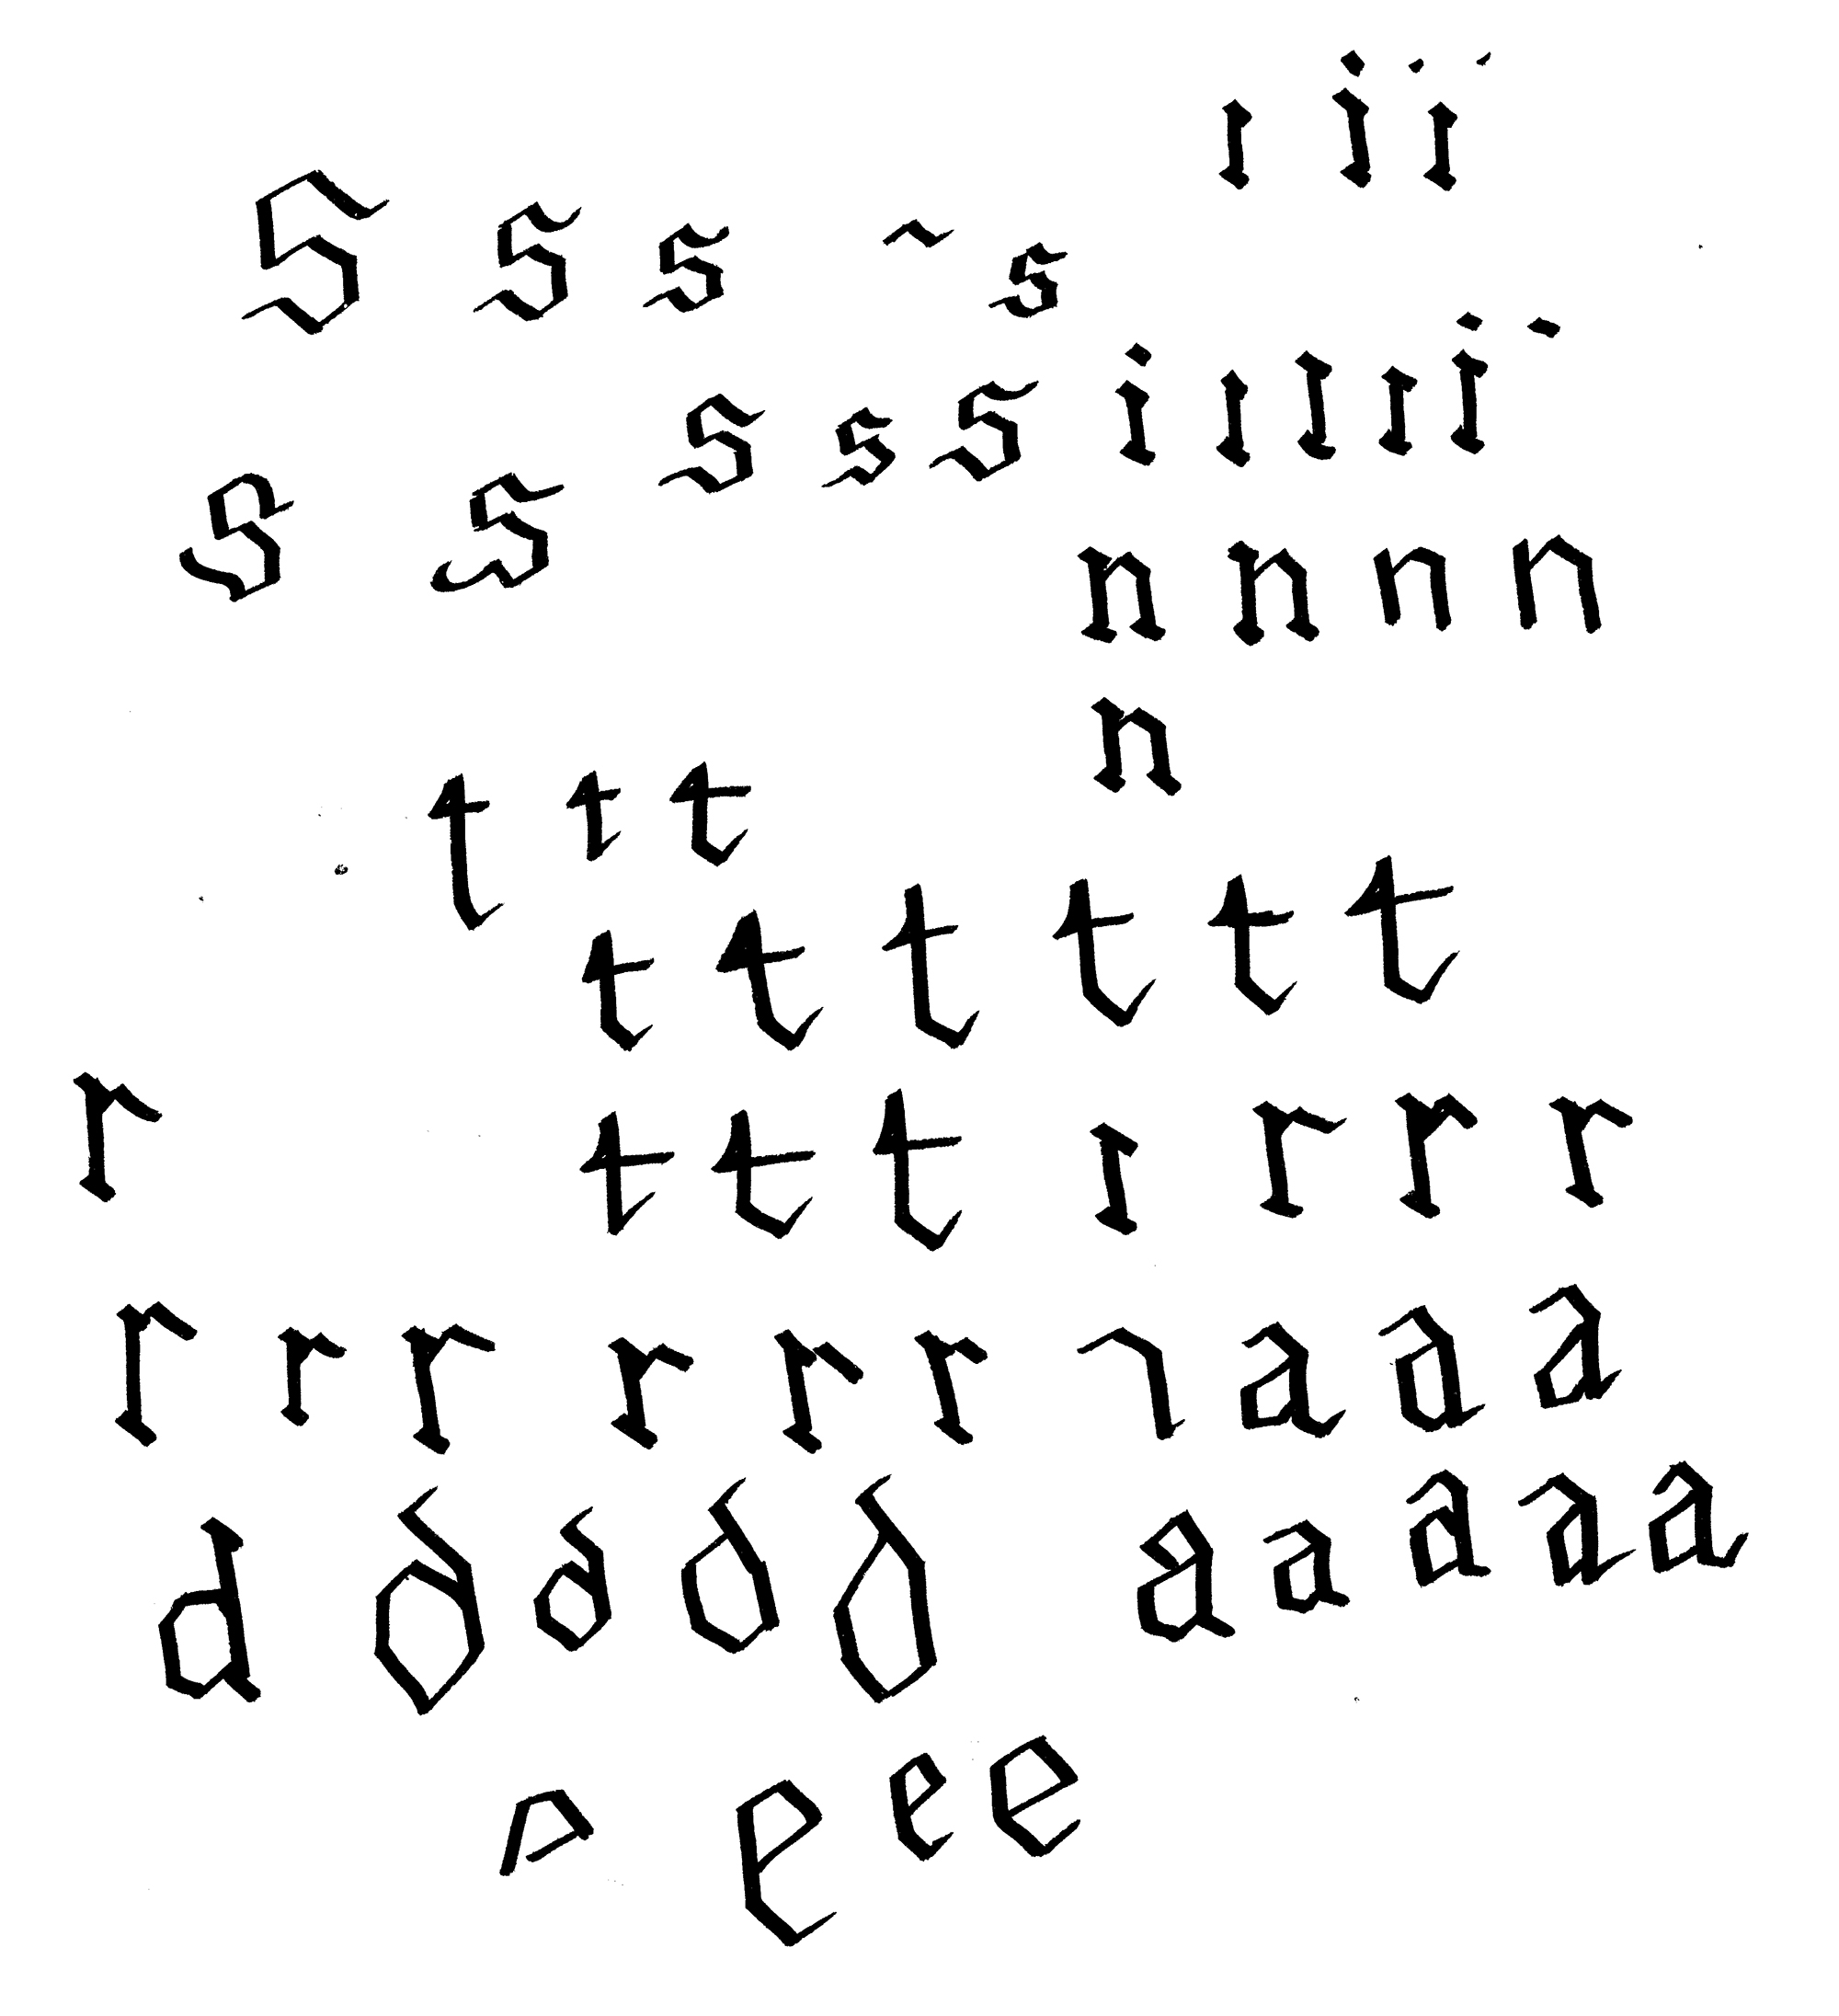 ı i i
s s s s
s s s i ı ı ı i
s s n n n n
n
t t t
t t t t t t
r t t t ı r r r
r r r r r r a a a
d d d d d a a a a a
e e e